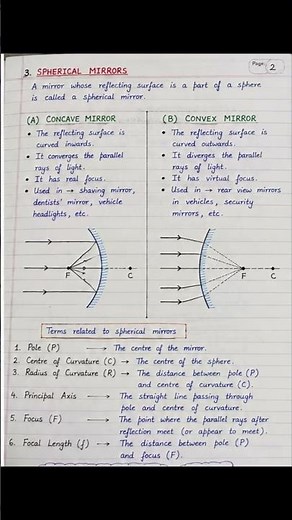 Page: 2
3. SPHERICAL MIRRORS
A mirror whose reflecting surface is a part of a sphere
is called a spherical mirror.
(A) CONCAVE MIRROR
• The reflecting surface is
curved inwards.
• It converges the parallel
rays of light.
• It has real focus.
• Used in → shaving mirror,
dentists' mirror, vehicle
headlights, etc.
F C
(B) CONVEX MIRROR
• The reflecting surface is
curved outwards.
• It diverges the parallel
rays of light.
• It has virtual focus.
• Used in → rear view mirrors
in vehicles, security
mirrors, etc.
F C
Terms related to spherical mirrors
1. Pole (P) → The centre of the mirror.
2. Centre of Curvature (C) → The centre of the sphere.
3. Radius of Curvature (R) → The distance between pole (P)
and centre of curvature (C).
4. Principal Axis → The straight line passing through
pole and centre of curvature.
5. Focus (F) → The point where the parallel rays after
reflection meet (or appear to meet).
6. Focal Length (f) → The distance between pole (P)
and focus (F).